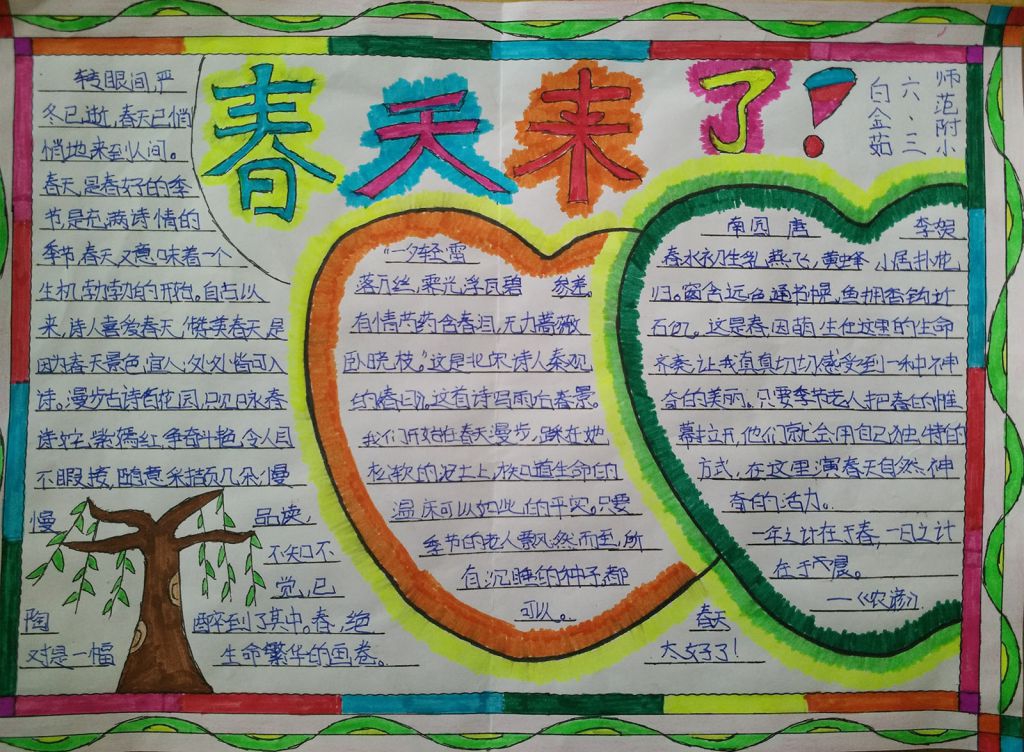 春天来了!
师范附小
六、三
白金茹
转眼间,严
冬已逝,春天已悄
悄地来到人间。
春天,是春好的季
节,是充满诗情的
季节,春天,又意味着一个
生机勃勃的开始。自古以
来,诗人喜爱春天,赞美春天,是
因为春天景色,宜人,处处皆可入
诗。漫步古诗百花园,只见咏春
诗姹紫嫣红,争奋斗艳,令人目
不暇接,随意采撷几朵,慢
慢 品读,
不知不
觉,已
陶 醉到了其中。春,绝
对是一幅 生命繁华的画卷。
“一夕轻雷
落万丝,霁光浮瓦碧 参差。
有情芍药含春泪,无力蔷薇
卧晓枝。”这是北宋诗人秦观
的《春日》。这首诗写雨后春景。
我们开始在春天漫步,踩在她
松软的泥土上,才知道生命的
温床可以如此的平实。只要
季节的老人飘然而至,所
有沉睡的种子,都
可以。
南园 唐 李贺
春水初生乳燕飞,黄蜂小尾扑花
归。窗含远色通书幌,鱼拥香钩近
石矶。这是春,因萌生在这里的生命
齐奏,让我真真切切感受到一种神
奇的美丽。只要季节老人把春的帷
幕拉开,他们就会用自己独特的
方式,在这里演春天自然神
奇的活力。
一年之计在于春,一日之计
在于晨。
—《农谚》
春天
太好了!